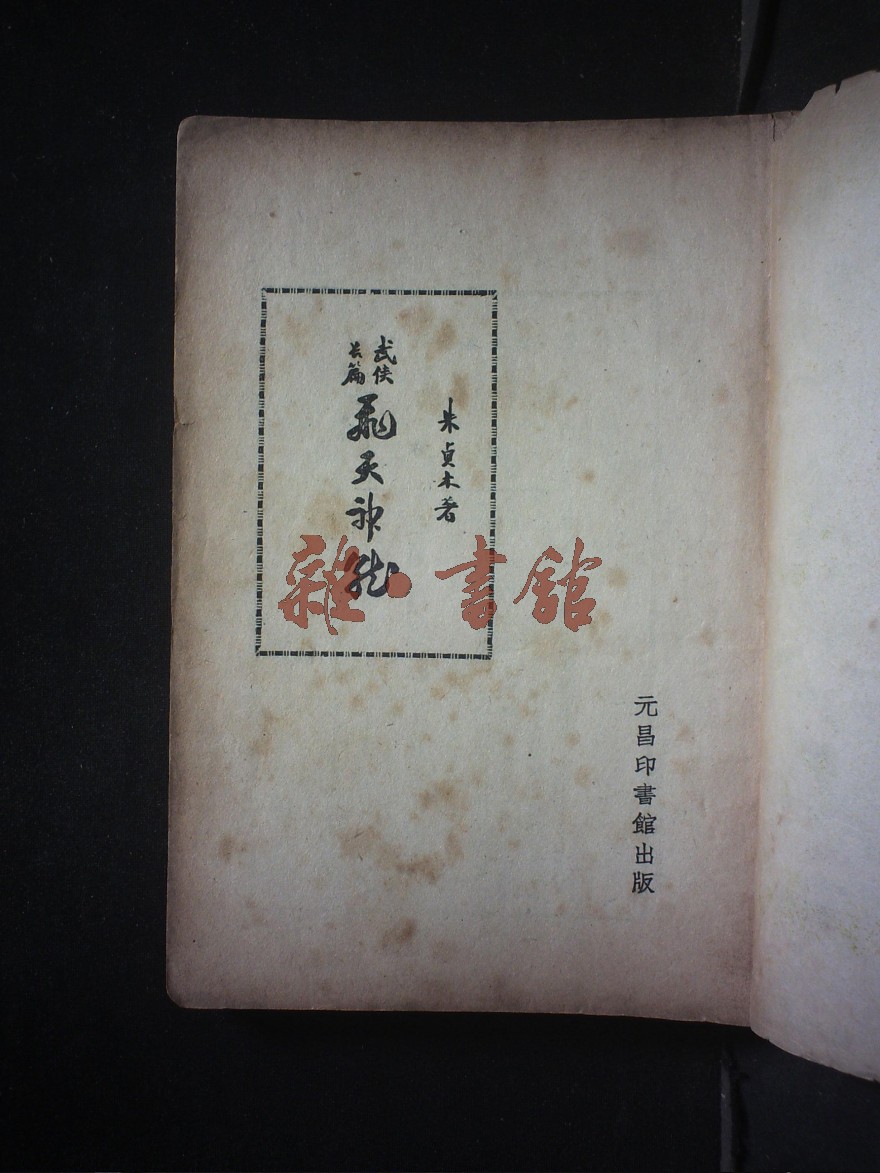 朱貞木著
武俠
長篇
飛天神龍
元昌印書館出版
雜·書館